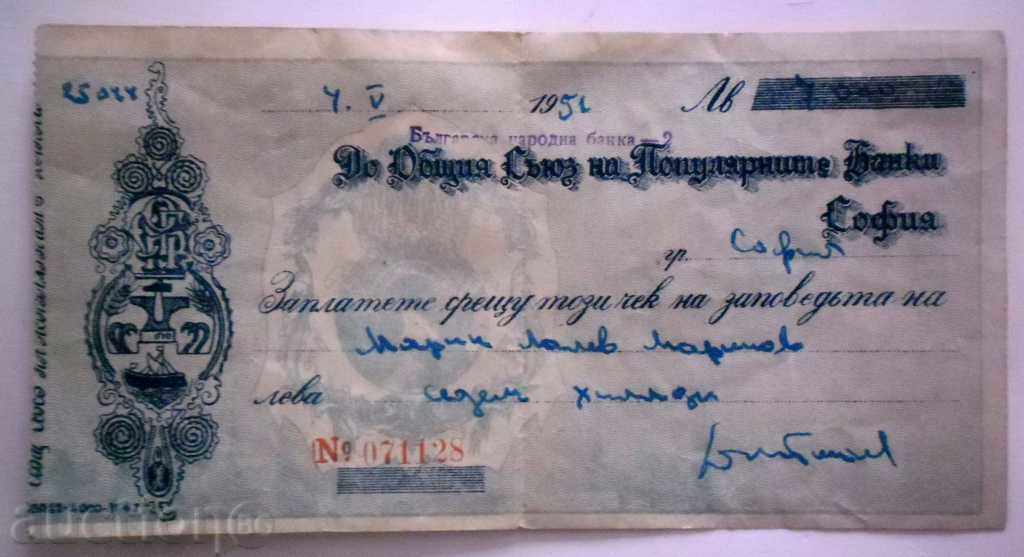 25044
4. V 1951 Лв 7000
Българска народна банка — 2
До Общия Съюз на Популярните Банки
София
гр. София
Заплатете срещу този чек на заповедьта на
Марин Лалев Маринов
лева седем хиляди
№ 071128